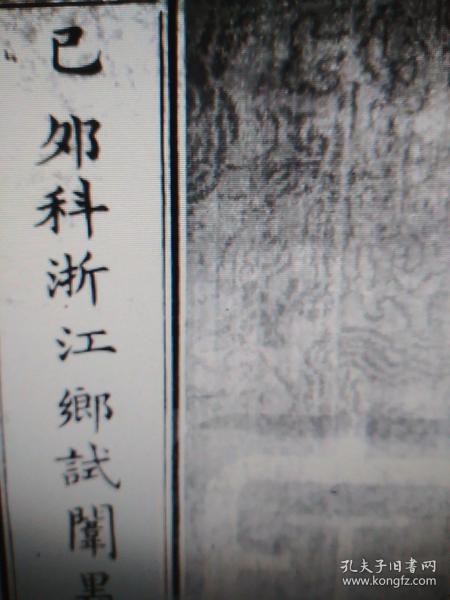 己夘科浙江鄉試闈墨
孔夫子旧书网
www.kongfz.com